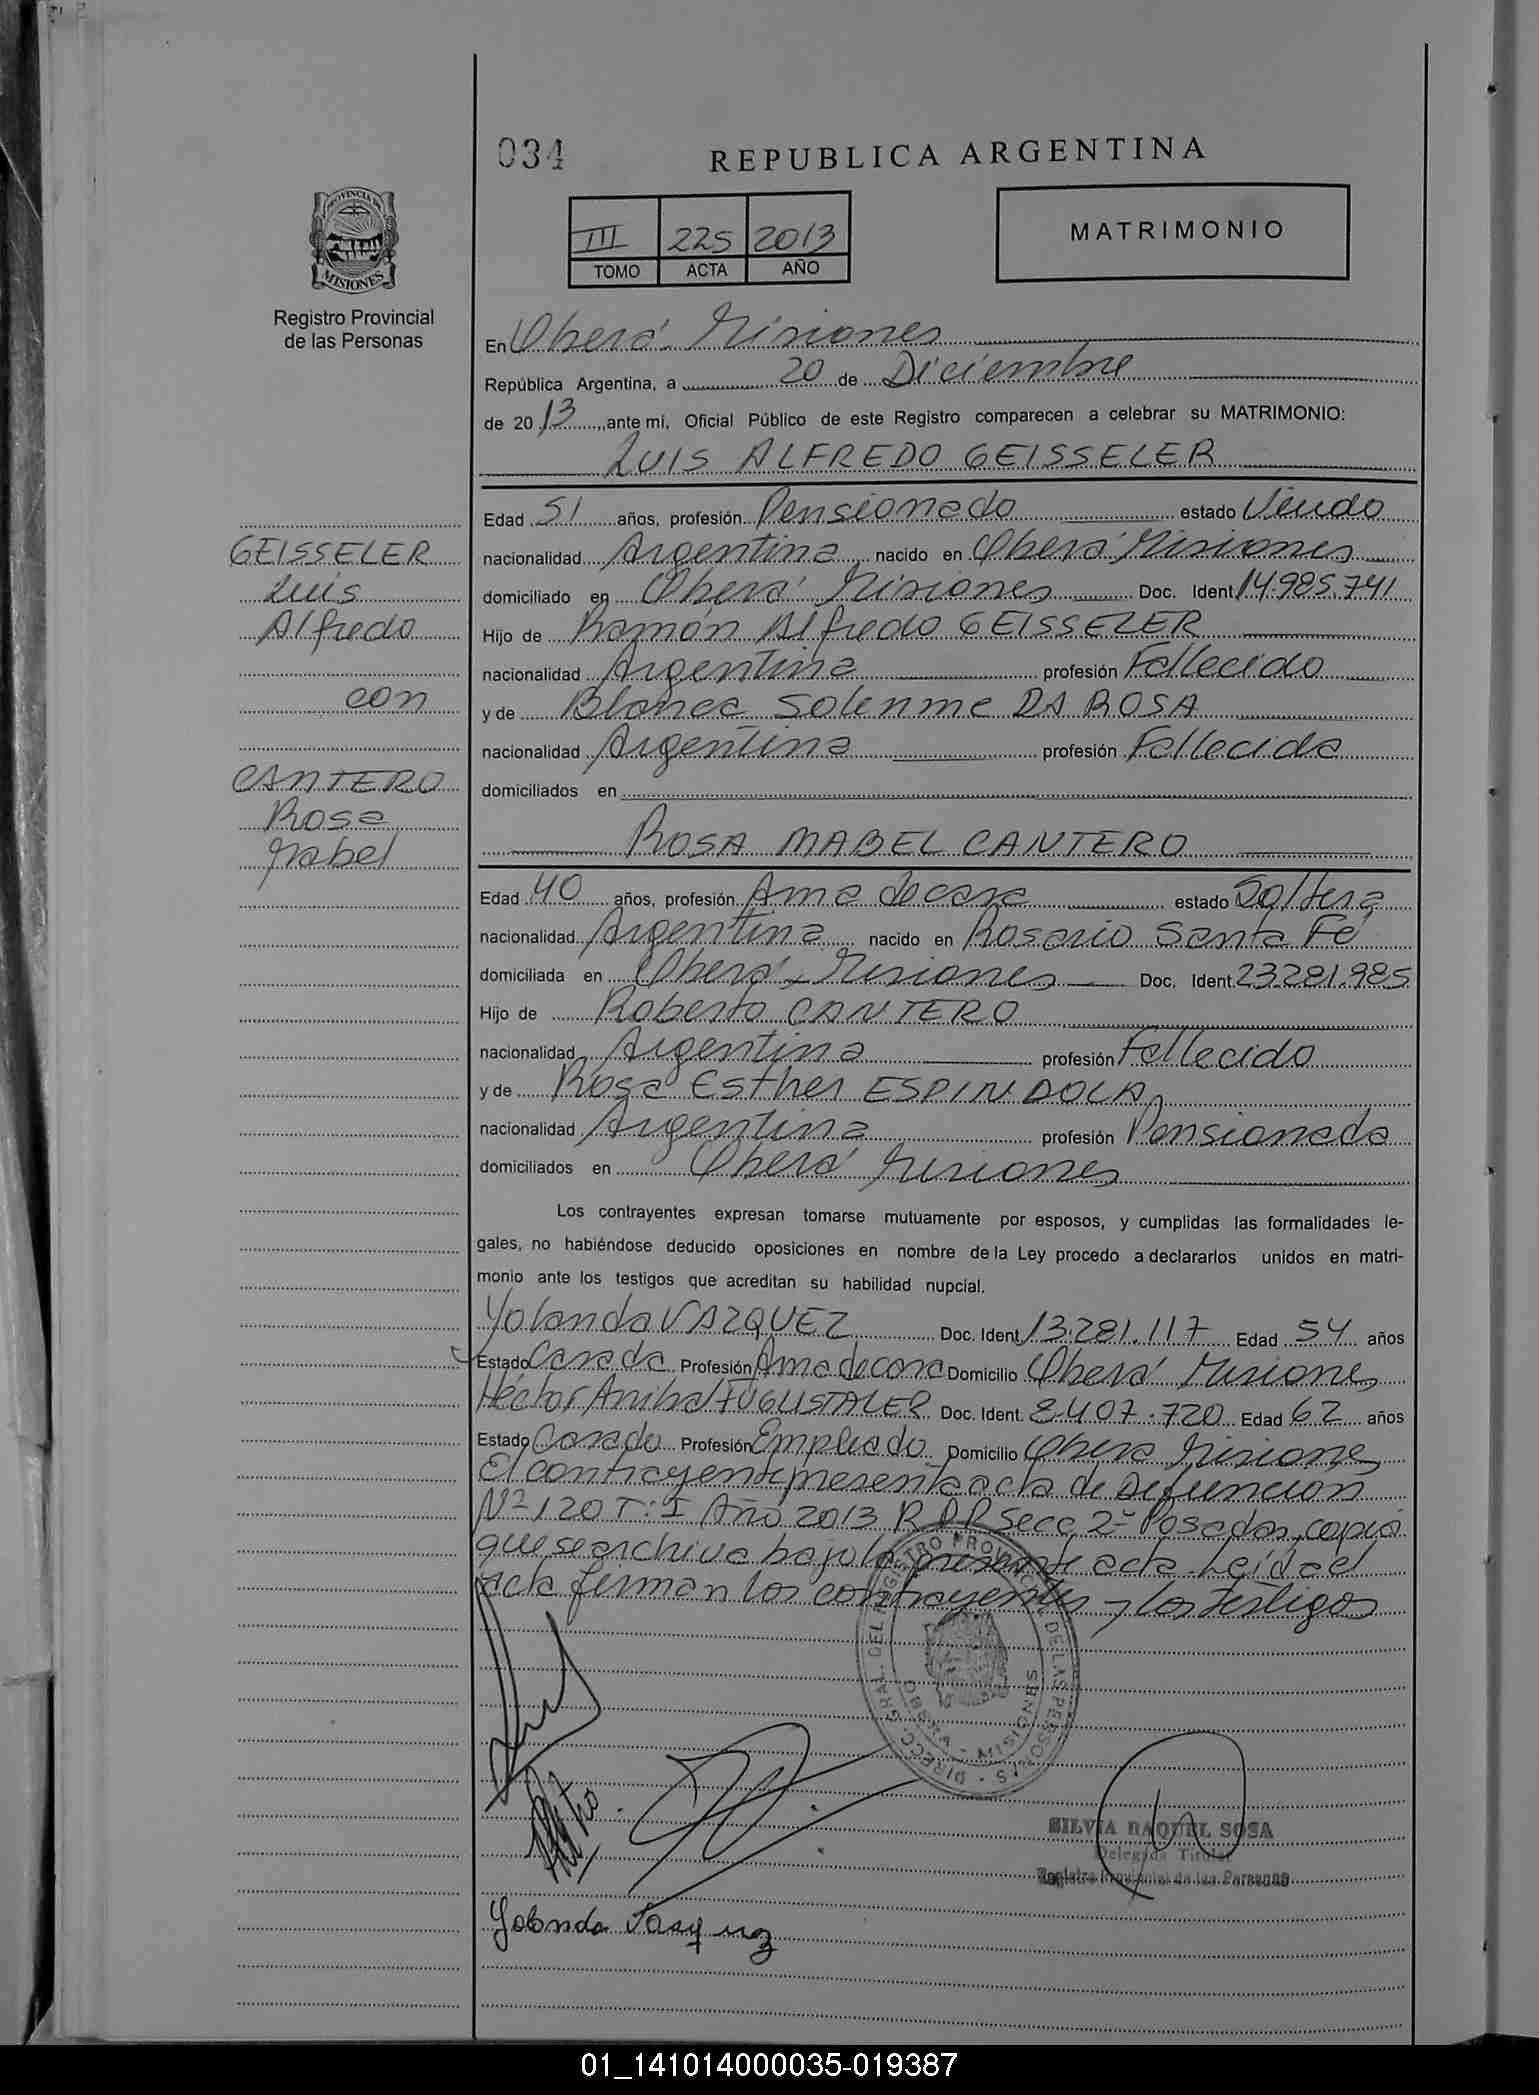 034
REPUBLICA ARGENTINA
PROVINCIA DE
MISIONES
Registro Provincial
de las Personas
III 225 2013
TOMO ACTA AÑO
MATRIMONIO
En Oberá Misiones
República Argentina, a 20 de Diciembre
de 2013, ante mi, Oficial Público de este Registro comparecen a celebrar su MATRIMONIO:
LUIS ALFREDO GEISSELER
Edad 51 años, profesión Pensionado estado Viudo
nacionalidad Argentina nacido en Oberá Misiones
domiciliado en Oberá Misiones Doc. Ident. 14.985.741
Hijo de Ramón Alfredo GEISSELER
nacionalidad Argentina profesión Fallecido
y de Blanca Solenme DA ROSA
nacionalidad Argentina profesión Fallecida
domiciliados en
GEISSELER
Luis
Alfredo
con
CANTERO
Rosa
Mabel
ROSA MABEL CANTERO
Edad 40 años, profesión Ama de casa estado Soltera
nacionalidad Argentina nacido en Rosario Santa Fé
domiciliada en Oberá - Misiones Doc. Ident. 23.281.985
Hijo de Roberto CANTERO
nacionalidad Argentina profesión Fallecido
y de Rosa Esther ESPINDOLA
nacionalidad Argentina profesión Pensionada
domiciliados en Oberá Misiones
Los contrayentes expresan tomarse mutuamente por esposos, y cumplidas las formalidades le-
gales, no habiéndose deducido oposiciones en nombre de la Ley procedo a declararlos unidos en matri-
monio ante los testigos que acreditan su habilidad nupcial.
Yolanda VAZQUEZ Doc. Ident. 13.281.117 Edad 54 años
Estado Casada Profesión Ama de casa Domicilio Oberá Misiones
Héctor Anibal FUGLISTALER Doc. Ident. 8.407.720 Edad 62 años
Estado Casado Profesión Empleado Domicilio Oberá Misiones
El contrayente presenta acta de Defunción
Nº 120 T: I Año 2013 R.P.P. Secc 2º Posadas, copia
que se archiva bajo la presente acta. Leída el
acta firman los contrayentes y los testigos
DIRECC. GRAL. DEL REGISTRO PROVINCIAL DE LAS PERSONAS
OBERA - MISIONES
SILVIA RAQUEL SOSA
Delegada Titular
Registro Provincial de las Personas
Yolanda Vazquez
01_141014000035-019387